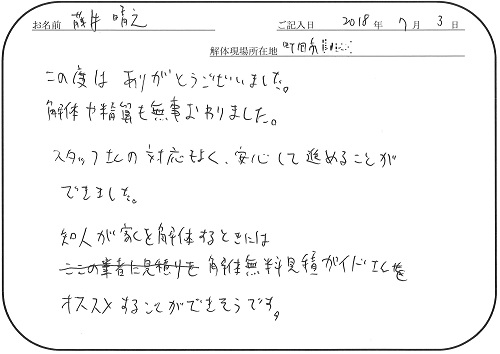 お名前 藤井 晴之 ご記入日 2018 年 7 月 3 日
解体現場所在地 町田市
この度は ありがとうございました。
解体や精算も無事おわりました。
スタッフさんの対応もよく、安心して進めることが
できました。
知人が家を解体するときには
ここの業者に見積りを 解体無料見積ガイドさんを
オススメすることができそうです。